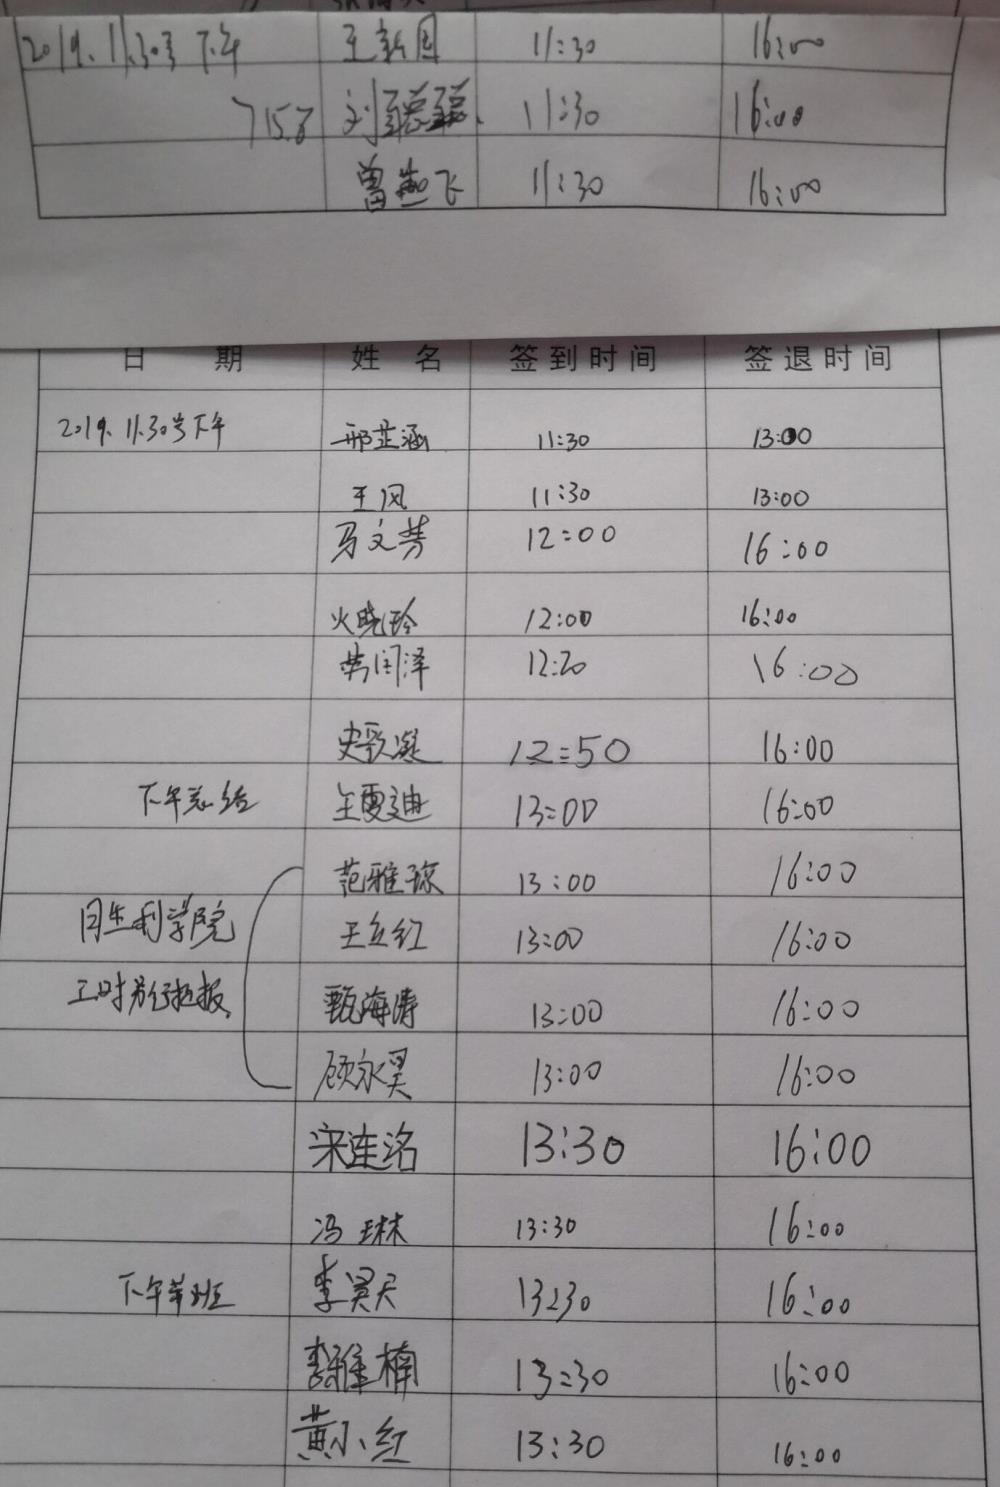 2019.11.30号下午 王新国 11:30 16:00
刘聪聪 11:30 16:00
曾燕飞 11:30 16:00
日 期 姓 名 签到时间 签退时间
2019.11.30号下午 邢芷涵 11:30 13:00
王风 11:30 13:00
马文芳 12:00 16:00
火晓玲 12:00 16:00
闰泽 12:20 16:00
史歌凝 12:50 16:00
下午总结 王夏迪 13:00 16:00
范雅琼 13:00 16:00
生利学院 王立红 13:00 16:00
工时另行报 甄海涛 13:00 16:00
顾永昊 13:00 16:00
宋连洺 13:30 16:00
冯琳 13:30 16:00
下午带班 李昊天 13:30 16:00
李雅楠 13:30 16:00
黄小红 13:30 16:00